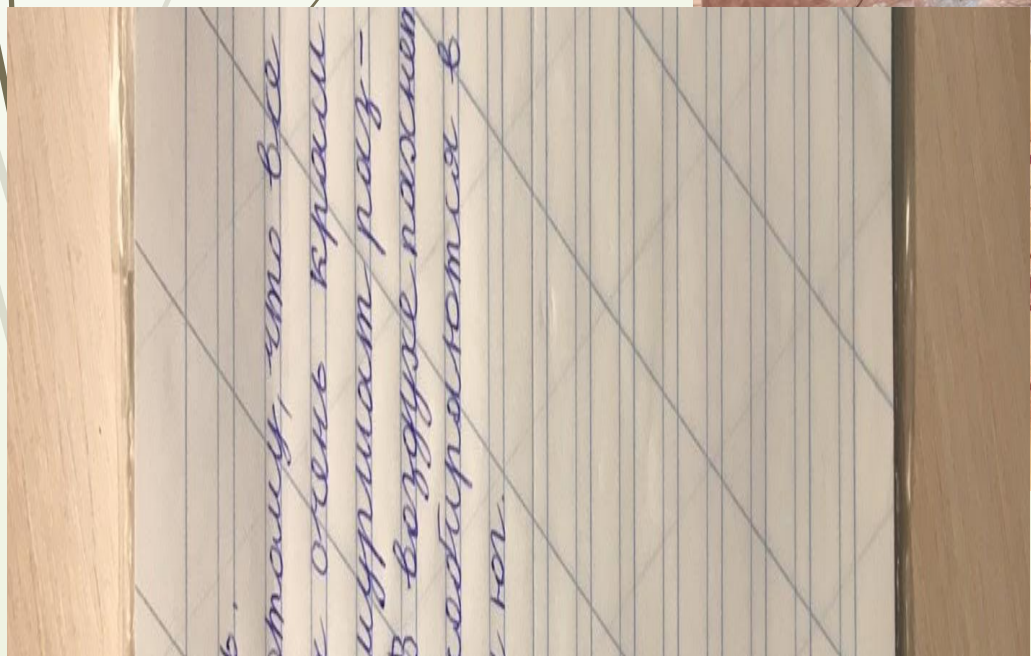 ь.
отому, что все
очень краси
шуршат раз-
В воздухе пахнет
собираются в
юг.